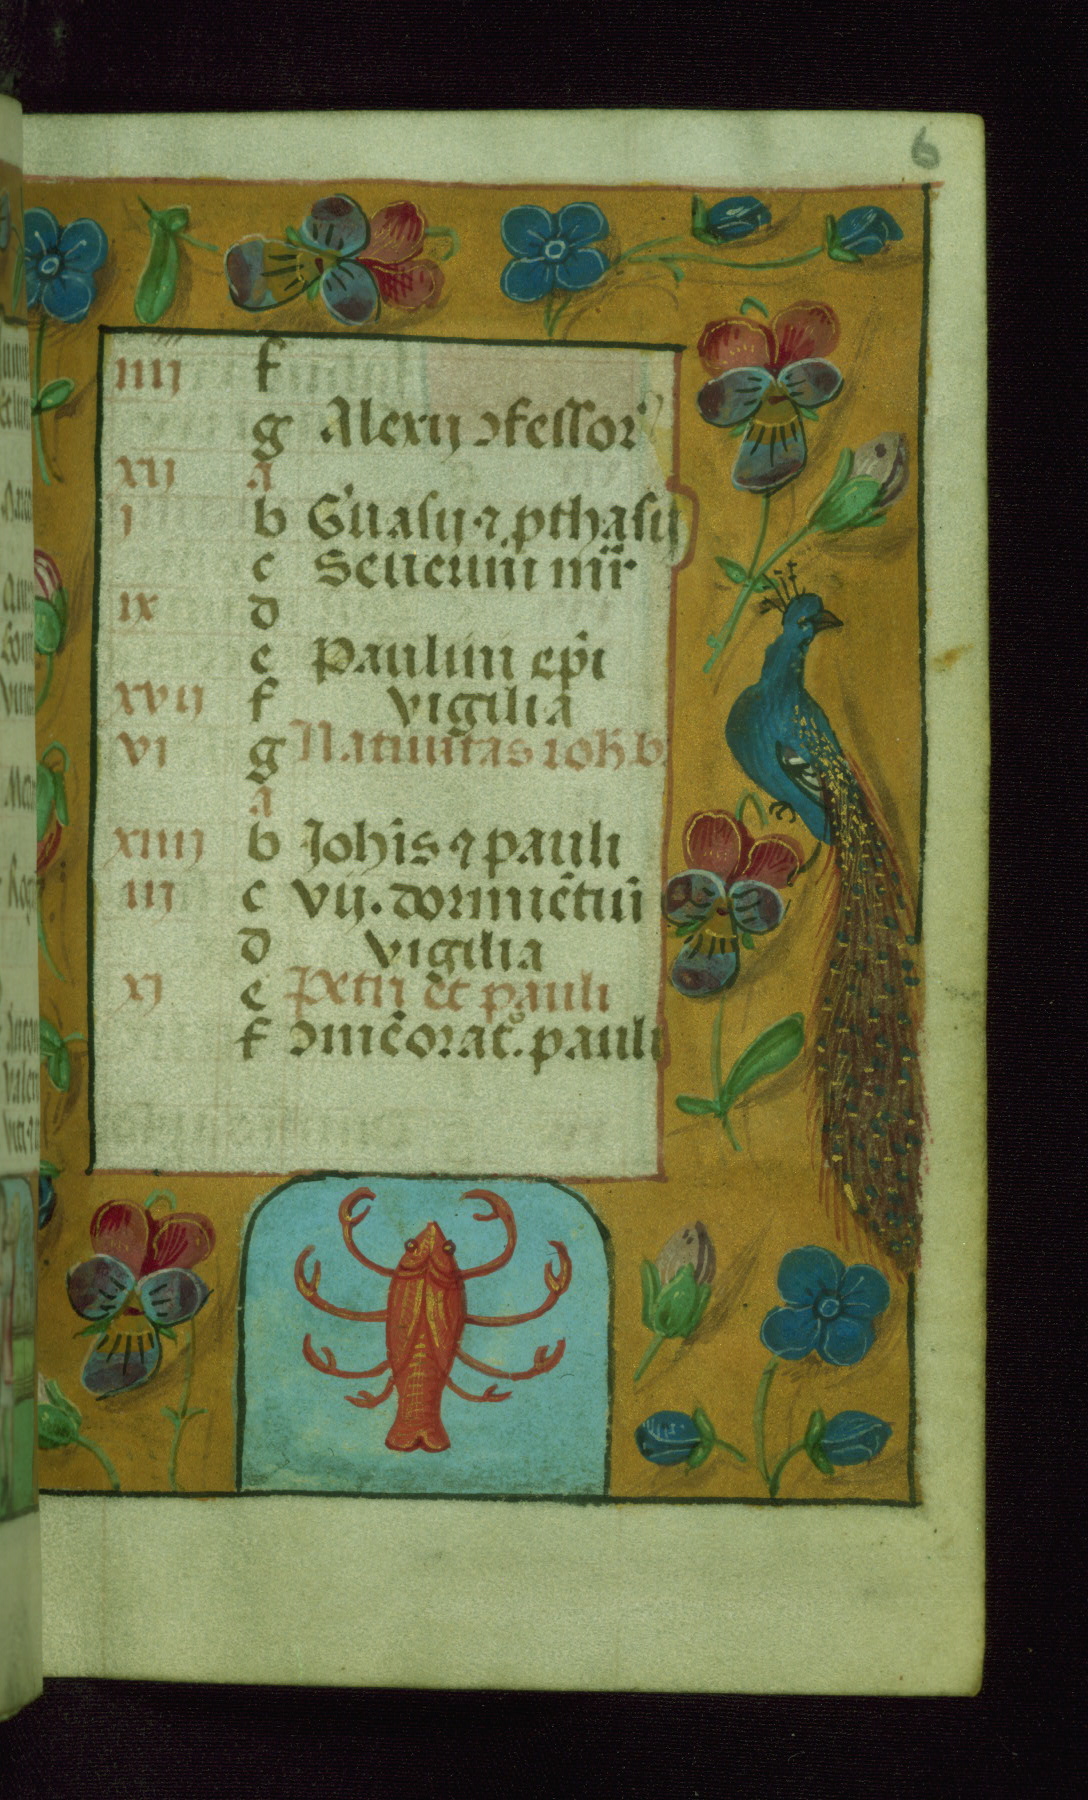 6
iiij f
g Alexij ɔfessor
xij a
i b G'uasij ⁊ pthasij
c Seuerini mr̄
ix d
e Paulini ep̄i
xvij f vigilia
vi g Natiuitas ioh̄ b
a
xiiij b Joh̄is ⁊ pauli
iij c vij. dormiētiū
d vigilia
xi e Petri et pauli
f ɔmēorat̄. pauli